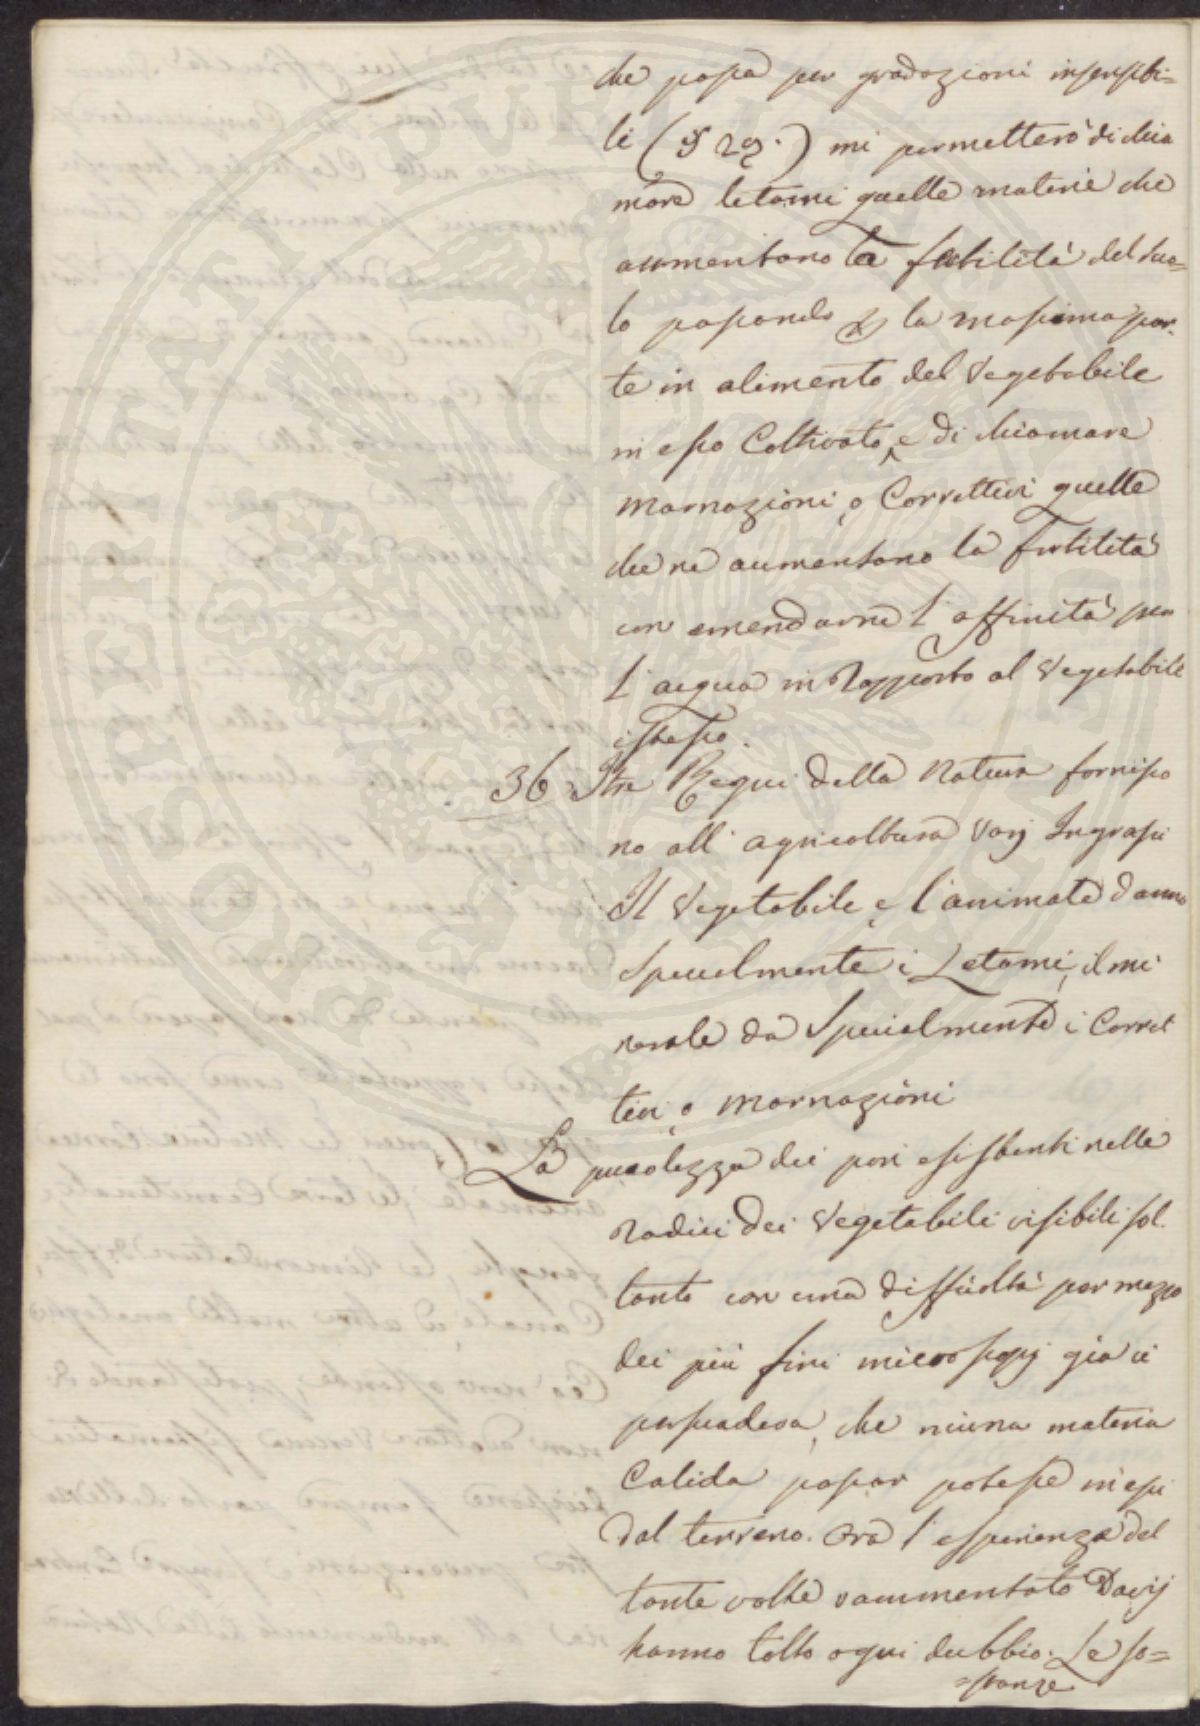 che passa per gradazioni insensibi=
li (§ 29.) mi permetterò di chia
mare letami quelle materie che
aumentano la fertilità del suo=
lo passando p la massima par-
te in alimento del Vegetabile
in esso Coltivato, e di chiamare
Marnazioni, o Correttivi quelle
che ne aumentano la fertilità
con emendarne l'affinità per
l'acqua in Rapporto al Vegetabile
istesso.
36 I tre Regni della Natura fornisco
no all'agricoltura varj Ingrassi
Il Vegetabile, e l'animale danno
Specialmente i Letami, il mi
nerale dà Specialmente i Corret
tivi, o Marnazioni
La picciolezza dei pori esistenti nelle
Radici dei Vegetabili visibili sol
tanto con una difficoltà per mezzo
dei più fini microscopj già ci
persuadeva, che niuna materia
Calida passar potesse in essi
dal terreno. Ora l'esperienza del
tante volte rammentato Davij
hanno tolto ogni dubbio. Le so=
=stanze
PROSPERITATI PUBLICAE